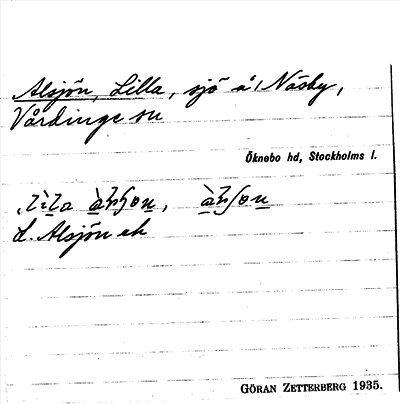 Alsjön, Lilla, sjö å Näsby,
Vårdinge sn
Öknebo hd, Stockholms l.
d. Alsjön ek
GÖRAN ZETTERBERG 1935.